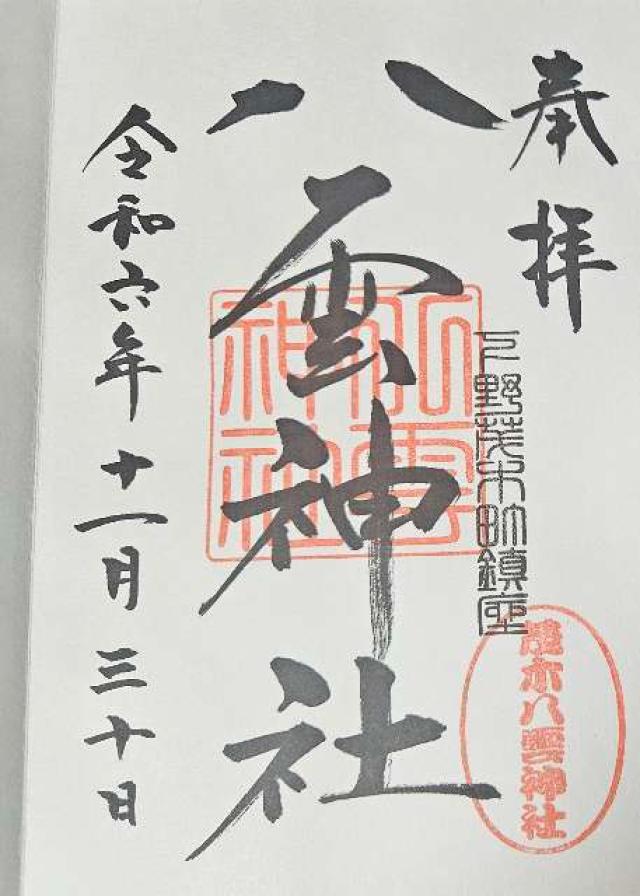 奉拝
下野茂木町鎮座
茂木八雲神社
八雲神社
八雲神社
令和六年十一月三十日